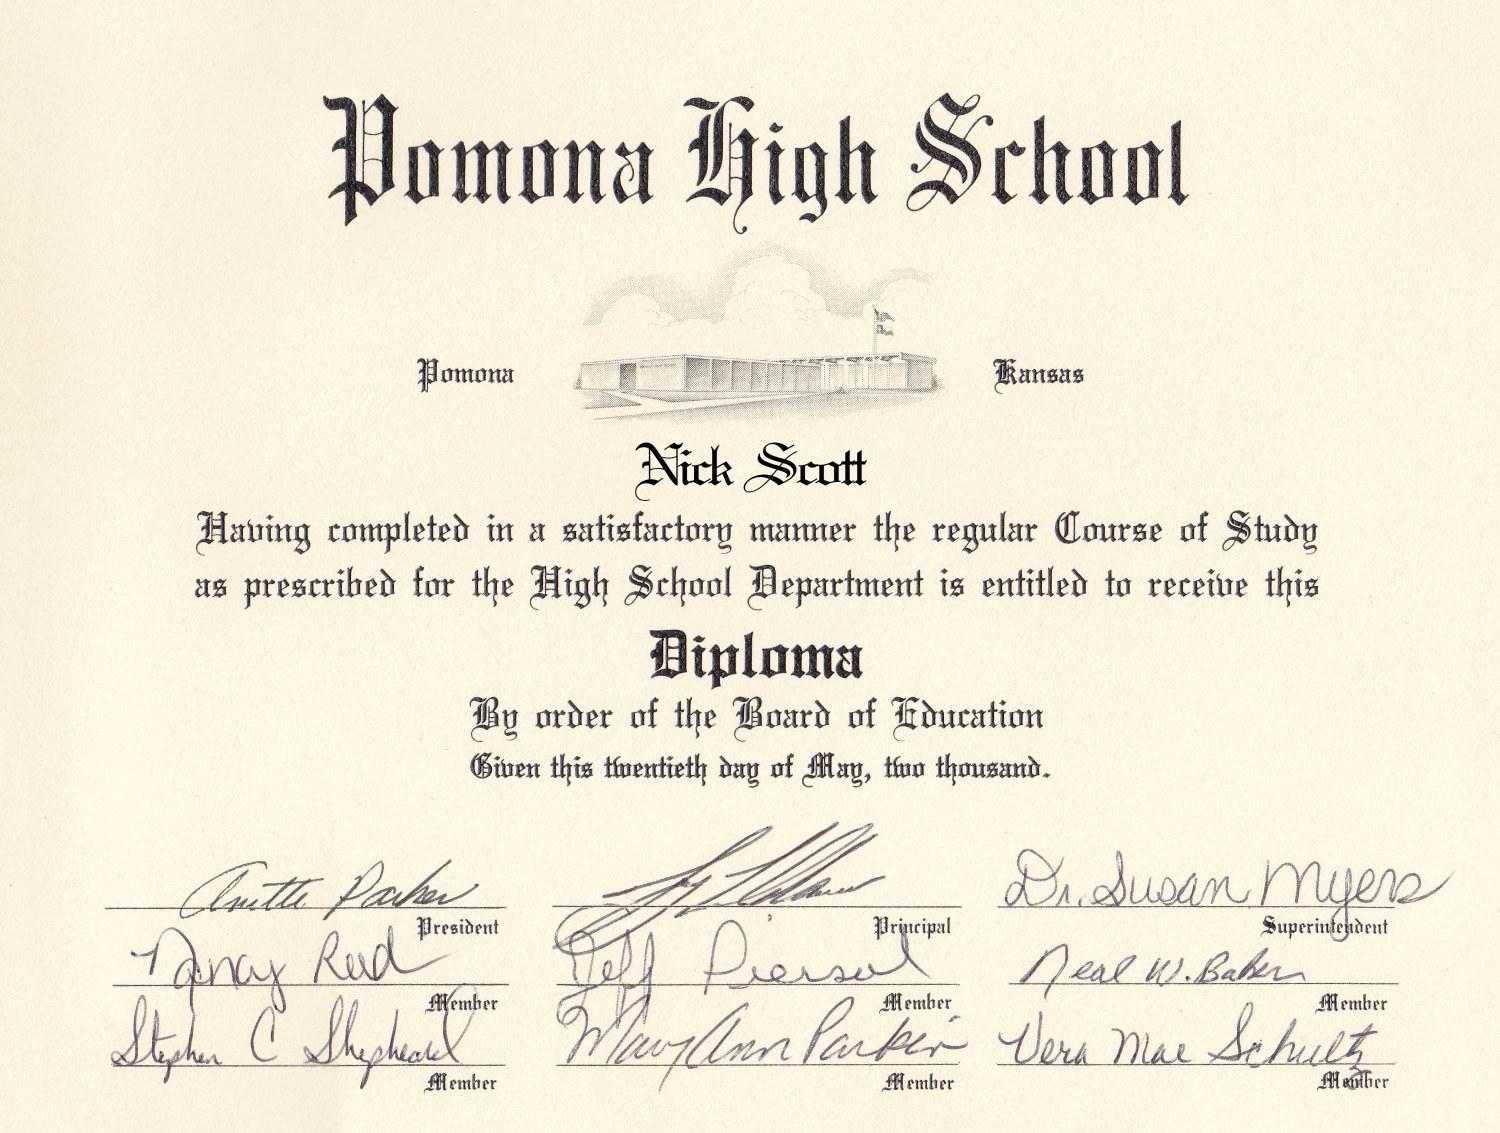 Pomona High School
Pomona Kansas
Nick Scott
Having completed in a satisfactory manner the regular Course of Study
as prescribed for the High School Department is entitled to receive this
Diploma
By order of the Board of Education
Given this twentieth day of May, two thousand.
Anette Parker Dr. Susan Myers
President Principal Superintendent
Nancy Reed Jeff Piersol Neal W. Baker
Member Member Member
Stephen C Shepheard Mary Ann Parkin Vera Mae Schultz
Member Member Member